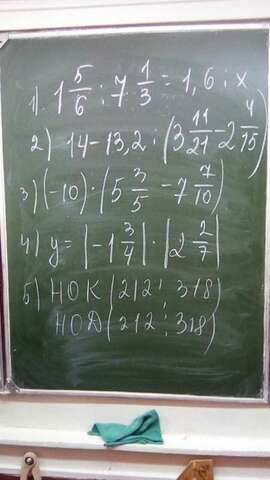 1) 1 5/6 : 7 1/3 = 1,6 : x
2) 14 - 13,2 : (3 11/21 - 2 4/15)
3) (-10) · (5 3/5 - 7 7/10)
4) y = |-1 3/4| · |2 2/7|
5) НОК (212 ; 318)
НОД (212 ; 318)